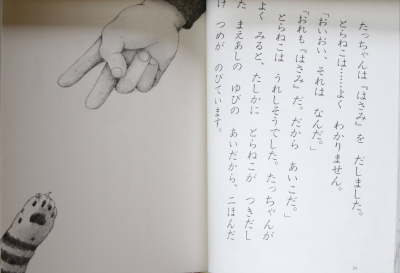 たっちゃんは『はさみ』を だしました。
とらねこは……よく わかりません。
「おいおい、それは なんだ。」
「おれも『はさみ』だ。だから あいこだ。」
とらねこは うれしそうでした。たっちゃんが
よく みると、たしかに とらねこが つきだし
た まえあしの ゆびの あいだから、二ほんだ
け つめが のびています。